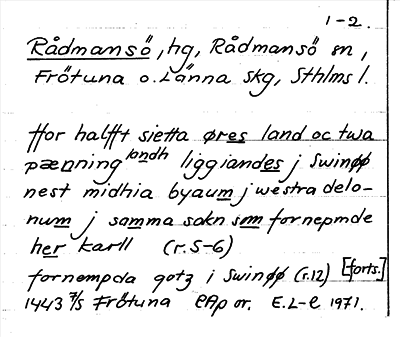 1-2.
Rådmansö, hg, Rådmansö sn,
Frötuna o. Länna skg, Sthlms l.
ffor halfft sietta øres land oc twa
pænning landh liggiandes j Swinøø
nest midhia byaum j westra delo-
num j samma sokn som fornepmde
her Karll (r. 5-6)
fornempda gotz i Swinøø (r.12) [forts.]
1443 7/5 Frötuna EAp or. E.L-e 1971.